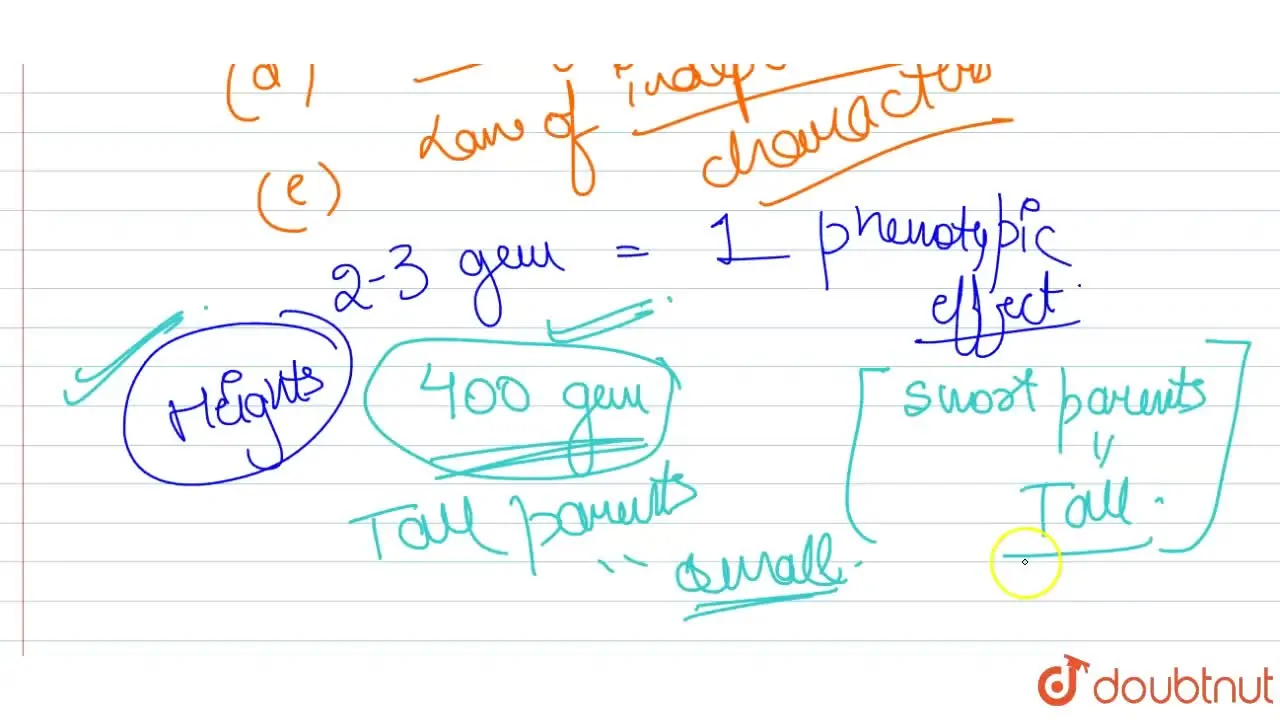 (d)
Law of indep
characters
(e)
2-3 gene = 1 phenotypic
effect.
Heights 400 gene
Short parents
Tall.
Tall parents
small.
doubtnut